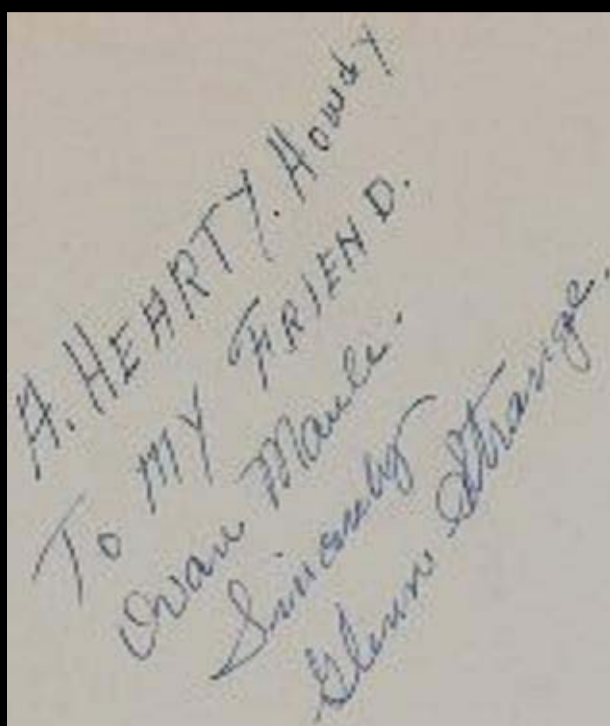 A. HEARTY. Howdy
To MY FRIEND.
Ovan Maule.
Sincerely
Glenn Strange.